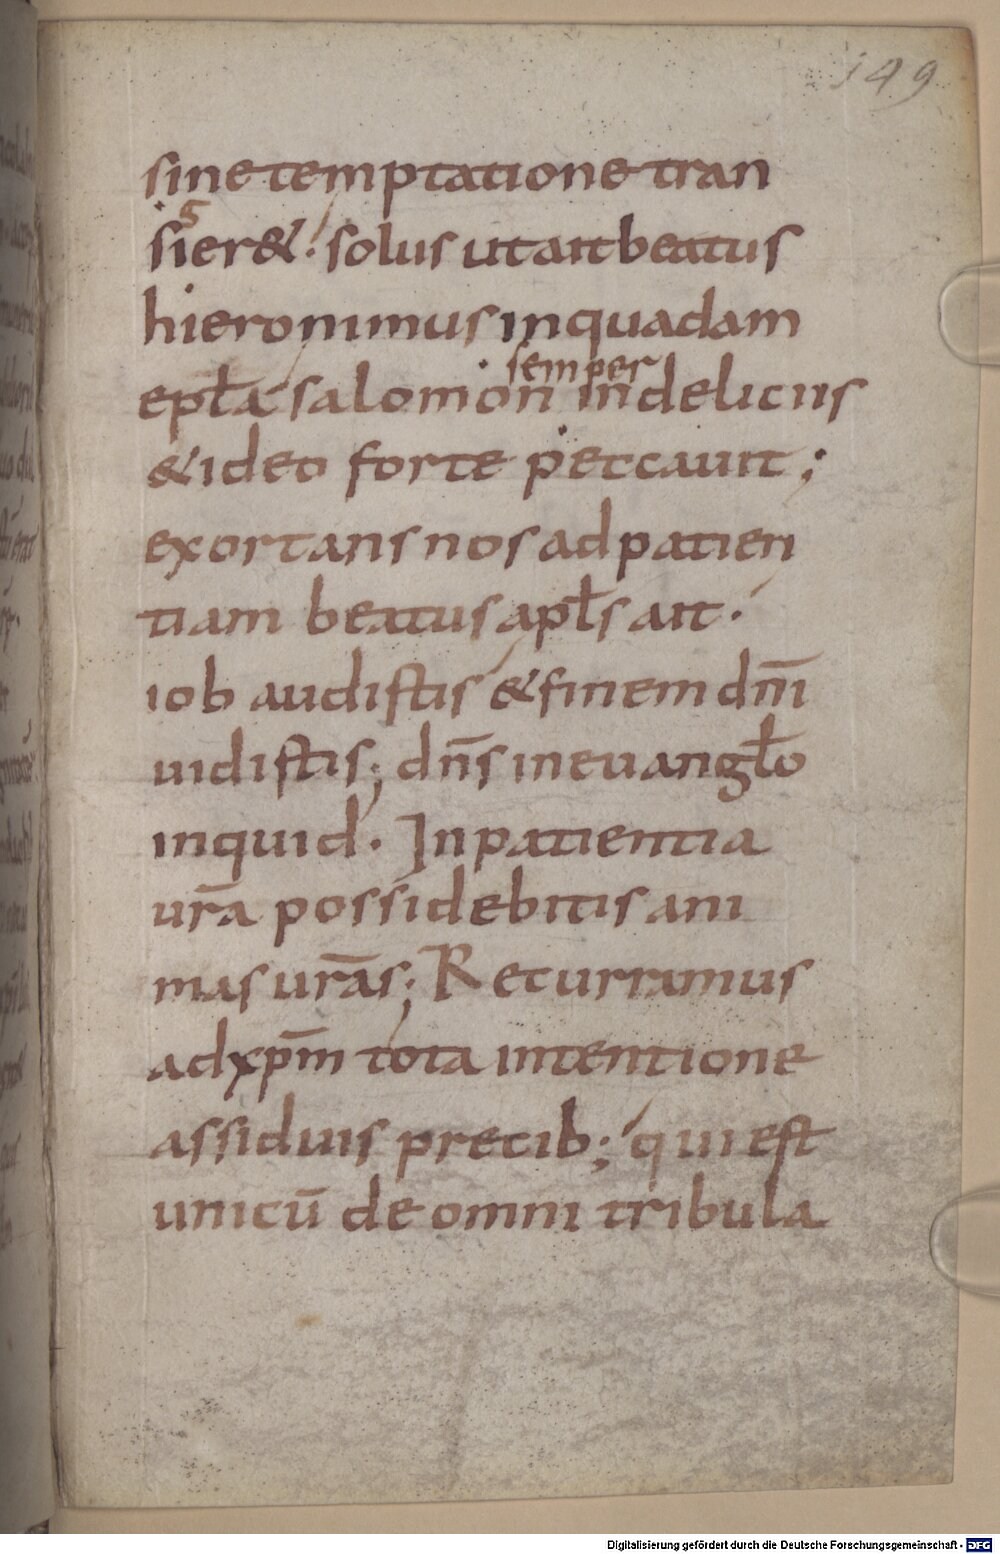 149
sine temptatione tran
s
sier&. solus ut ait beatus
hieronimus in quadam
semper
epła salomon in deliciis
& ideo forte peccauit;
exortans nos ad patien
tiam beatus apłs ait.
iob audistis & finem dn̄i
uidistis; dn̄s in euangło
inquid. In patientia
ur̄a possidebitis ani
mas ur̄as; Recurramus
ad xp̄m tota intentione
assiduis precib; qui est
unicū de omni tribula
Digitalisierung gefördert durch die Deutsche Forschungsgemeinschaft - DFG